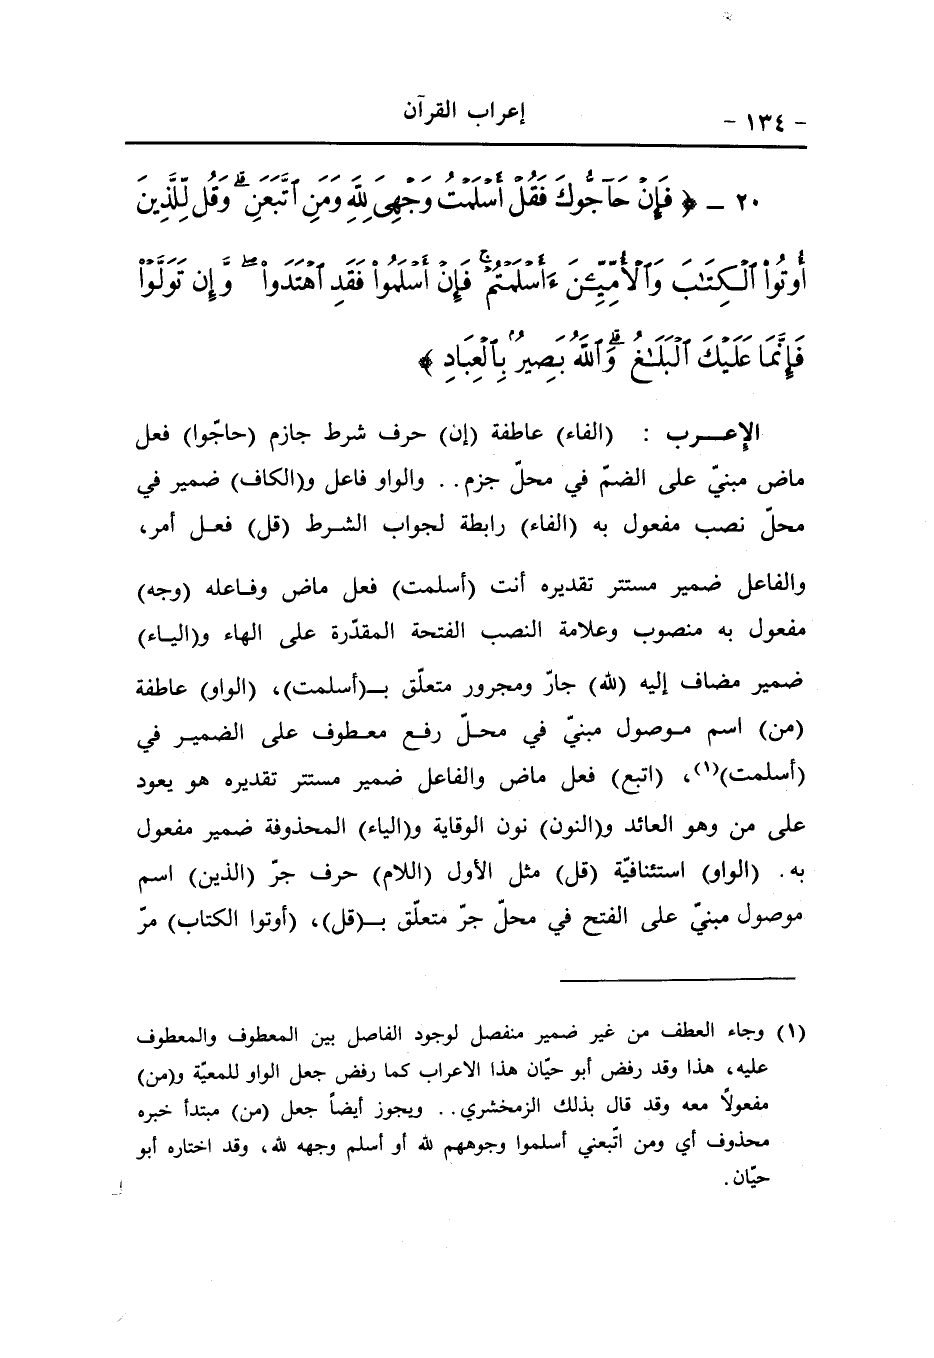 - ١٣٤ - إعراب القرآن
٢٠ ــ ﴿ فَإِنْ حَآجُّوكَ فَقُلْ أَسْلَمْتُ وَجْهِىَ لِلَّهِ وَمَنِ ٱتَّبَعَنِ ۗ وَقُل لِّلَّذِينَ
أُوتُوا۟ ٱلْكِتَـٰبَ وَٱلْأُمِّيِّـۧنَ ءَأَسْلَمْتُمْ ۚ فَإِنْ أَسْلَمُوا۟ فَقَدِ ٱهْتَدَوا۟ ۖ وَّإِن تَوَلَّوْا۟
فَإِنَّمَا عَلَيْكَ ٱلْبَلَـٰغُ ۗ وَٱللَّهُ بَصِيرٌۢ بِٱلْعِبَادِ ﴾
الإعـــرب : (الفاء) عاطفة (إن) حرف شرط جازم (حاجّوا) فعل
ماض مبنيّ على الضمّ في محلّ جزم . . والواو فاعل و(الكاف) ضمير في
محلّ نصب مفعول به (الفاء) رابطة لجواب الشرط (قل) فعـل أمر،
والفاعل ضمير مستتر تقديره أنت (أسلمت) فعل ماض وفـاعله (وجه)
مفعول به منصوب وعلامة النصب الفتحة المقدّرة على الهاء و(اليـاء)
ضمير مضاف إليه (لله) جارّ ومجرور متعلّق بــ(أسلمت)، (الواو) عاطفة
(من) اسم مـوصول مبنيّ في محـلّ رفـع معـطوف على الضميـر في
(أسلمت)(١)، (اتبع) فعل ماض والفاعل ضمير مستتر تقديره هو يعود
على من وهو العائد و(النون) نون الوقاية و(الياء) المحذوفة ضمير مفعول
به . (الواو) استئنافيّة (قل) مثل الأول (اللام) حرف جرّ (الذين) اسم
موصول مبنيّ على الفتح في محلّ جرّ متعلّق بــ(قل)، (أوتوا الكتاب) مرّ
(١) وجاء العطف من غير ضمير منفصل لوجود الفاصل بين المعطوف والمعطوف
عليه، هذا وقد رفض أبو حيّان هذا الاعراب كما رفض جعل الواو للمعيّة و(من)
مفعولاً معه وقد قال بذلك الزمخشري . . ويجوز أيضاً جعل (من) مبتدأ خبره
محذوف أي ومن اتّبعني أسلموا وجوههم لله أو أسلم وجهه لله، وقد اختاره أبو
حيّان .